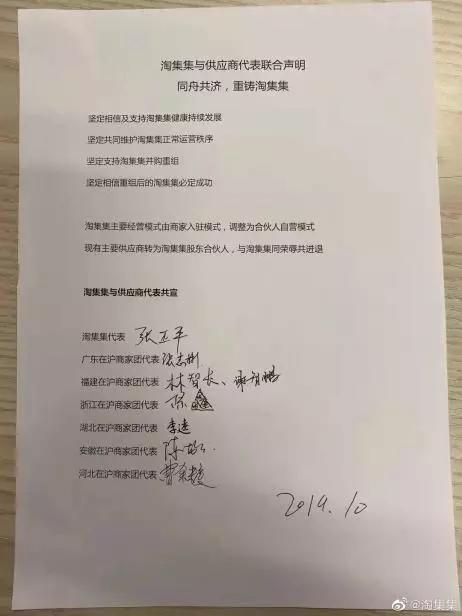 淘集集与供应商代表联合声明
同舟共济，重铸淘集集
坚定相信及支持淘集集健康持续发展
坚定共同维护淘集集正常运营秩序
坚定支持淘集集并购重组
坚定相信重组后的淘集集必定成功
淘集集主要经营模式由商家入驻模式，调整为合伙人自营模式
现有主要供应商转为淘集集股东合伙人，与淘集集同荣辱共进退
淘集集与供应商代表共宣
淘集集代表 张正平
广东在沪商家团代表
福建在沪商家团代表 林智长、
浙江在沪商家团代表
湖北在沪商家团代表
安徽在沪商家团代表
河北在沪商家团代表
2019.10
@淘集集